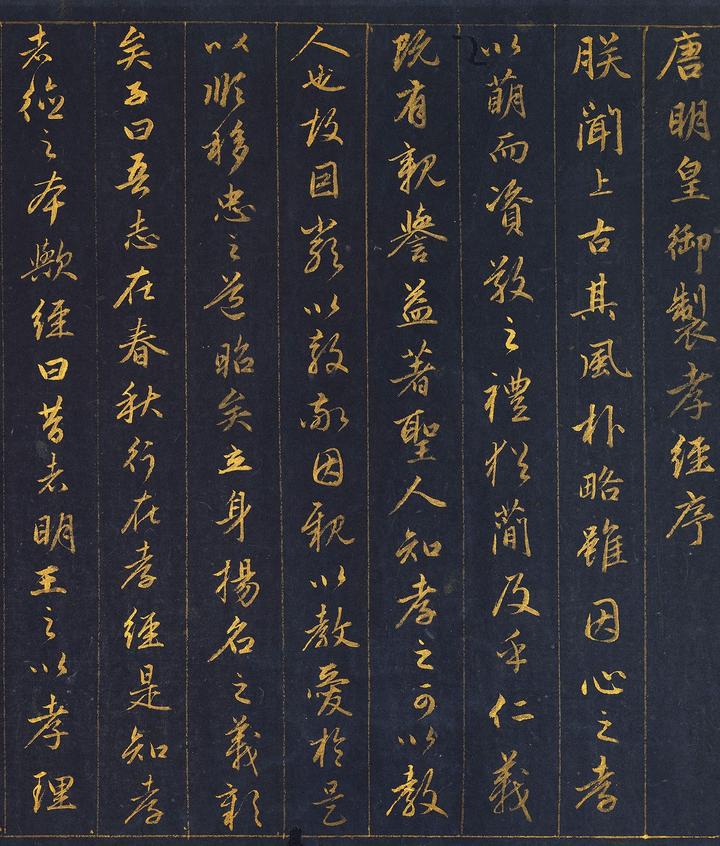 唐明皇御製孝經序
朕聞上古其風朴略雖因心之孝
以萌而資敬之禮猶簡及乎仁義
既有親譽益著聖人知孝之可以教
人也故因嚴以教敬因親以教愛於是
以順移忠之道昭矣立身揚名之義彰
矣子曰吾志在春秋行在孝經是知孝
者德之本歟經曰昔者明王之以孝理